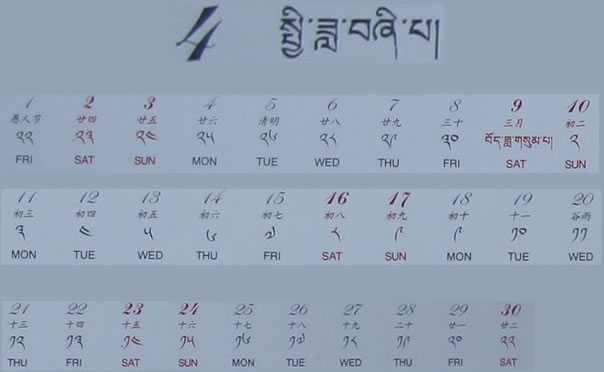 4 སྤྱི་ཟླ་བཞི་པ།
1 2 3 4 5 6 7 8 9 10
愚人节 廿四 廿五 廿六 清明 廿八 廿九 三十 三月 初二
༢༢ ༢༣ ༢༤ ༢༥ ༢༦ ༢༨ ༢༩ ༣༠ བོད་ཟླ་གསུམ་པ། ༢
FRI SAT SUN MON TUE WED THU FRI SAT SUN
11 12 13 14 15 16 17 18 19 20
初三 初四 初五 初六 初七 初八 初九 初十 十一 谷雨
༣ ༤ ༥ ༦ ༧ ༨ ༩ ༩ ༡༠ ༡༡
MON TUE WED THU FRI SAT SUN MON TUE WED
21 22 23 24 25 26 27 28 29 30
十三 十四 十五 十六 十七 十八 十九 二十 廿一 廿二
༡༢ ༡༣ ༡༤ ༡༥ ༡༦ ༡༧ ༡༨ ༡༩ ༢༠ ༢༢
THU FRI SAT SUN MON TUE WED THU FRI SAT